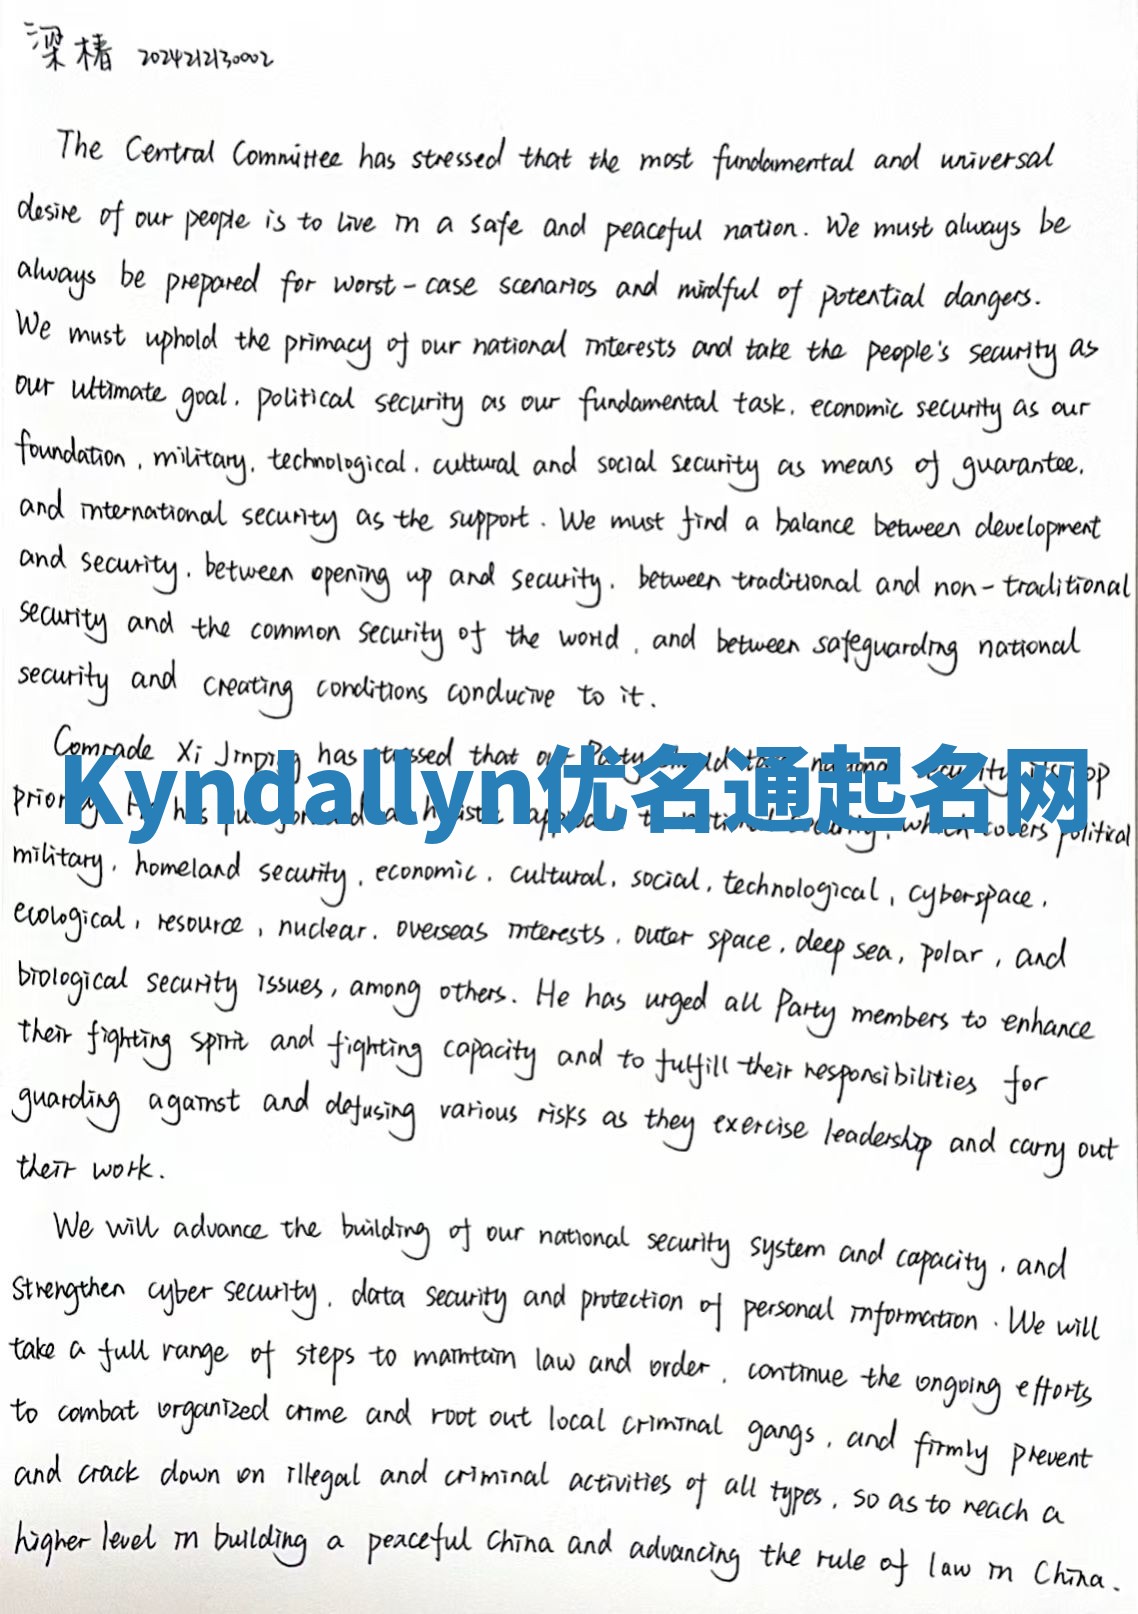 梁椿 2024212130002
The Central Committee has stressed that the most fundamental and universal
desire of our people is to live in a safe and peaceful nation. We must always be
always be prepared for worst-case scenarios and mindful of potential dangers.
We must uphold the primacy of our national interests and take the people's security as
our ultimate goal, political security as our fundamental task, economic security as our
foundation, military, technological, cultural and social security as means of guarantee,
and international security as the support. We must find a balance between development
and security, between opening up and security, between traditional and non-traditional
security and the common security of the world, and between safeguarding national
security and creating conditions conducive to it.
Comrade Xi Jinping has stressed that our Party should take national security its top
Kyndallyn优名通起名网
priority. He has put forward a holistic approach to national security, which covers political
military, homeland security, economic, cultural, social, technological, cyberspace,
ecological, resource, nuclear, overseas interests, outer space, deep sea, polar, and
biological security issues, among others. He has urged all Party members to enhance
their fighting spirit and fighting capacity and to fulfill their responsibilities for
guarding against and defusing various risks as they exercise leadership and carry out
their work.
We will advance the building of our national security system and capacity, and
strengthen cyber security, data security and protection of personal information. We will
take a full range of steps to maintain law and order, continue the ongoing efforts
to combat organized crime and root out local criminal gangs, and firmly prevent
and crack down on illegal and criminal activities of all types, so as to reach a
higher level in building a peaceful China and advancing the rule of law in China.